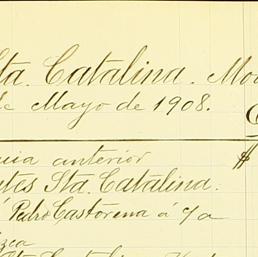 Sta. Catalina. Mo
de Mayo de 1908.
uia anterior $
tes Sta. Catalina.
Pedro Castorena á c/a
Sta Catalina